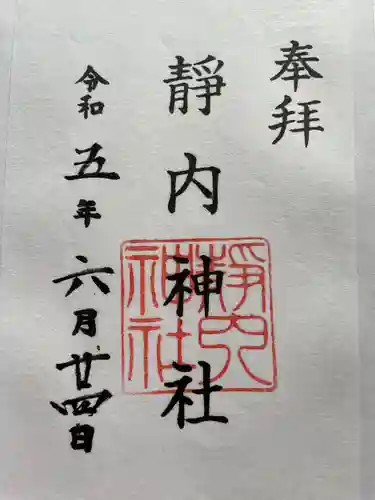 奉拝
靜内神社
靜内神社
令和五年六月廿四日